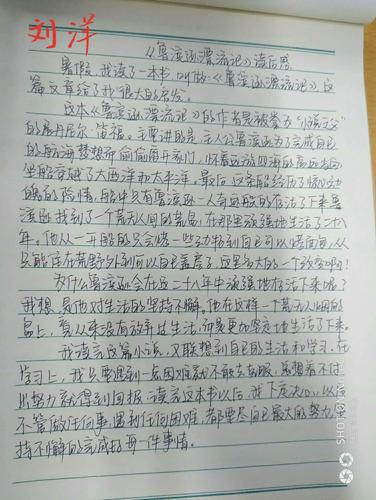 刘洋
《鲁滨逊漂流记》读后感
暑假,我读了一本书,叫做《鲁滨逊漂流记》这
篇文章给了我很大的启发。
这本《鲁滨逊漂流记》的作者是被誉为“小说之父”
的丹尼尔·笛福。主要讲的是,主人公鲁滨逊为了完成自己
的航海梦想而偷偷离开家门,怀着远游四海的高远志向,
坐船穿越了大西洋和太平洋。最后,这条船经历了惊心动
魄的险情,船中只有鲁滨逊一人奇迹般的存活了下来鲁
滨逊找到了个荒无人间的荒岛,在那里顽强地生活了二十八
年。他从一开始的只会
只能住在荒野外到可以自己盖房子,这是多大的一个改变啊!
为什么鲁滨逊会在这二十八年中顽强地存活下来呢?
我想,是他对生活的坚持不懈。他在这样一个荒无人烟的
岛上,看从来没有放弃过生活,而是更加坚定地生活了下来。
我读完这篇小说,又联想到自己的生活和学习,在
学习上,我只要遇到一点困难就不敢去克服,总想着不付
出努力就得到回报。读完这本书以后,我下定决心,以后
不管做任何事,遇到任何困难,都要尽自己最大的努力,坚
持不懈的完成好每一件事情。